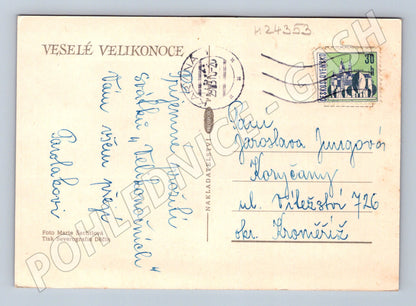 H. 24353
VESELÉ VELIKONOCE
Příjemné prožití
svátků „Velikonočních"
Vám všem přejí
Pavlákovi
Foto Marie Šechtlová
Tisk Severografia Děčín
NAKLADATELSTVÍ
ČESKOSLOVENSKO
30
Paní
Jaroslava Jungová
Koryčany
ul. Vítězství 726
okr. Kroměříž
POHLEDNICE - CASH